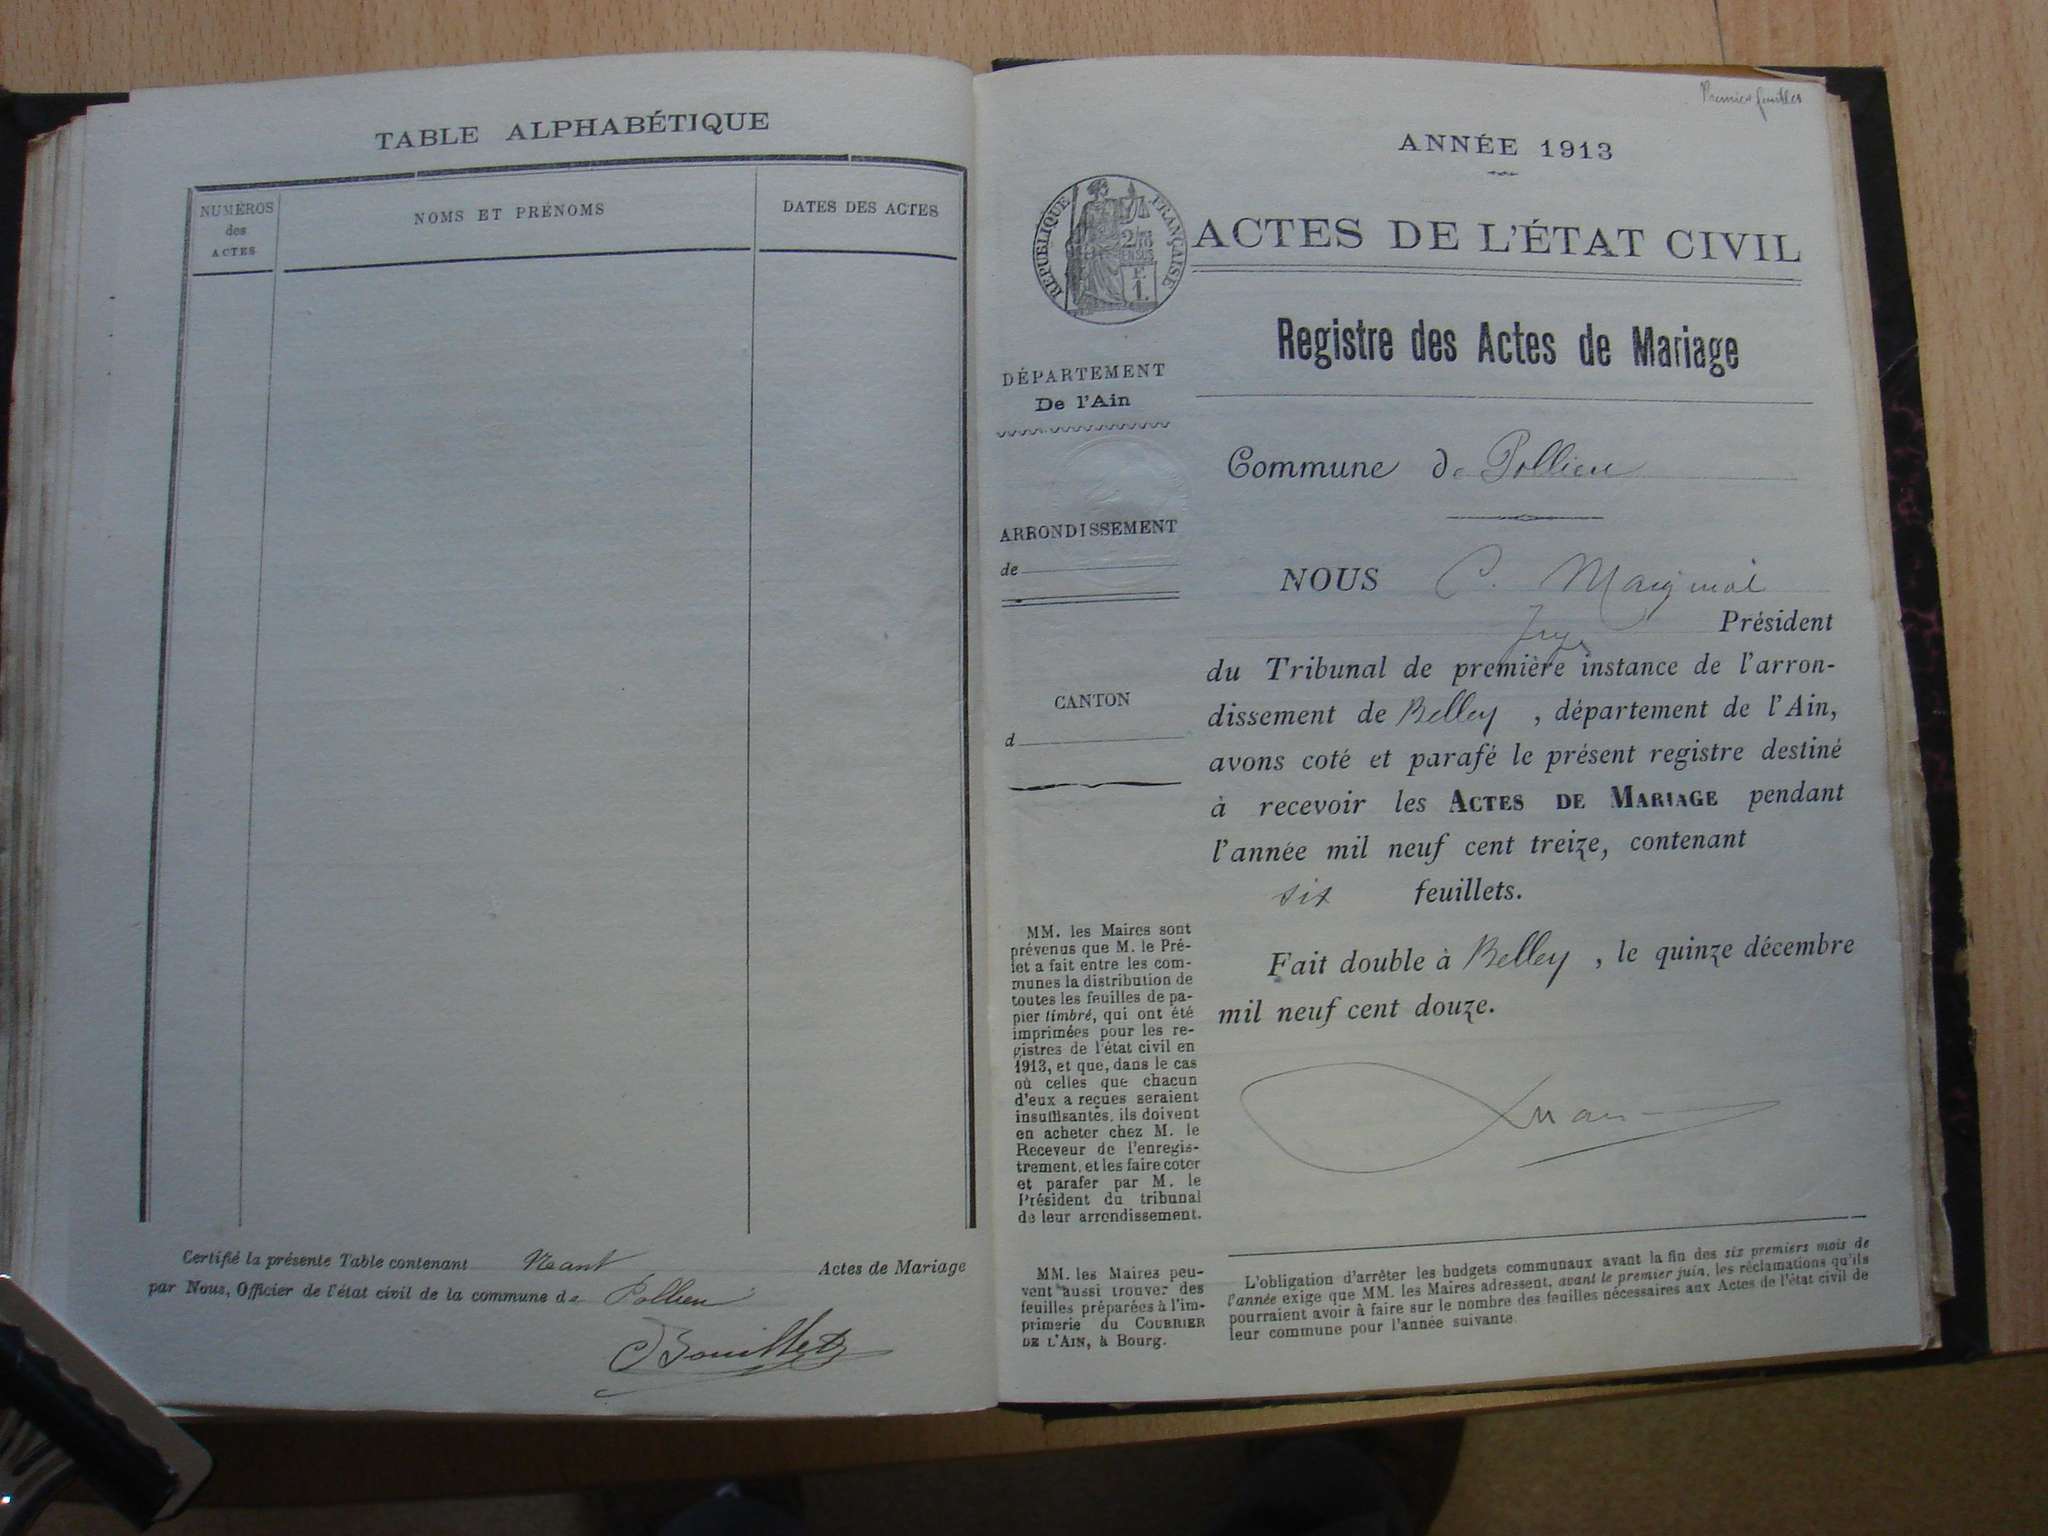 TABLE ALPHABÉTIQUE
NUMÉROS
des
ACTES
NOMS ET PRÉNOMS
DATES DES ACTES
Certifié la présente Table contenant Néant Actes de Mariage
par Nous, Officier de l'état civil de la commune de Pollieu
Premier feuillet
ANNÉE 1913
RÉPUBLIQUE FRANÇAISE
2/10
EN SUS
F.
1.
ACTES DE L'ÉTAT CIVIL
Registre des Actes de Mariage
DÉPARTEMENT
De l'Ain
Commune de Pollieu
ARRONDISSEMENT
de
NOUS C.
Président
du Tribunal de première instance de l'arron-
dissement de Belley, département de l'Ain,
avons coté et parafé le présent registre destiné
à recevoir les ACTES DE MARIAGE pendant
l'année mil neuf cent treize, contenant
six feuillets.
Fait double à Belley, le quinze décembre
mil neuf cent douze.
CANTON
d
MM. les Maires sont
prévenus que M. le Pré-
fet a fait entre les com-
munes la distribution de
toutes les feuilles de pa-
pier timbré, qui ont été
imprimées pour les re-
gistres de l'état civil en
1913, et que, dans le cas
où celles que chacun
d'eux a reçues seraient
insuffisantes, ils doivent
en acheter chez M. le
Receveur de l'enregis-
trement, et les faire coter
et parafer par M. le
Président du tribunal
de leur arrondissement.
MM. les Maires peu-
vent aussi trouver des
feuilles préparées à l'im-
primerie du COURRIER
DE L'AIN, à Bourg.
L'obligation d'arrêter les budgets communaux avant la fin des six premiers mois de
l'année exige que MM. les Maires adressent, avant le premier juin, les réclamations qu'ils
pourraient avoir à faire sur le nombre des feuilles nécessaires aux Actes de l'état civil de
leur commune pour l'année suivante.